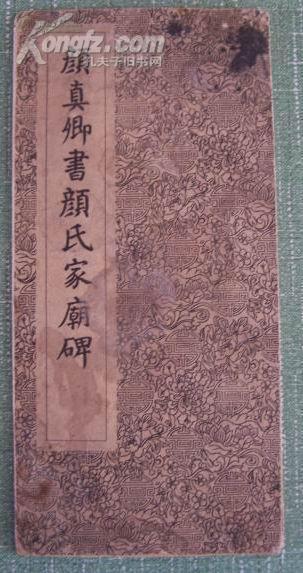 Kongfz.com
孔夫子旧书网
顔真卿書顔氏家廟碑